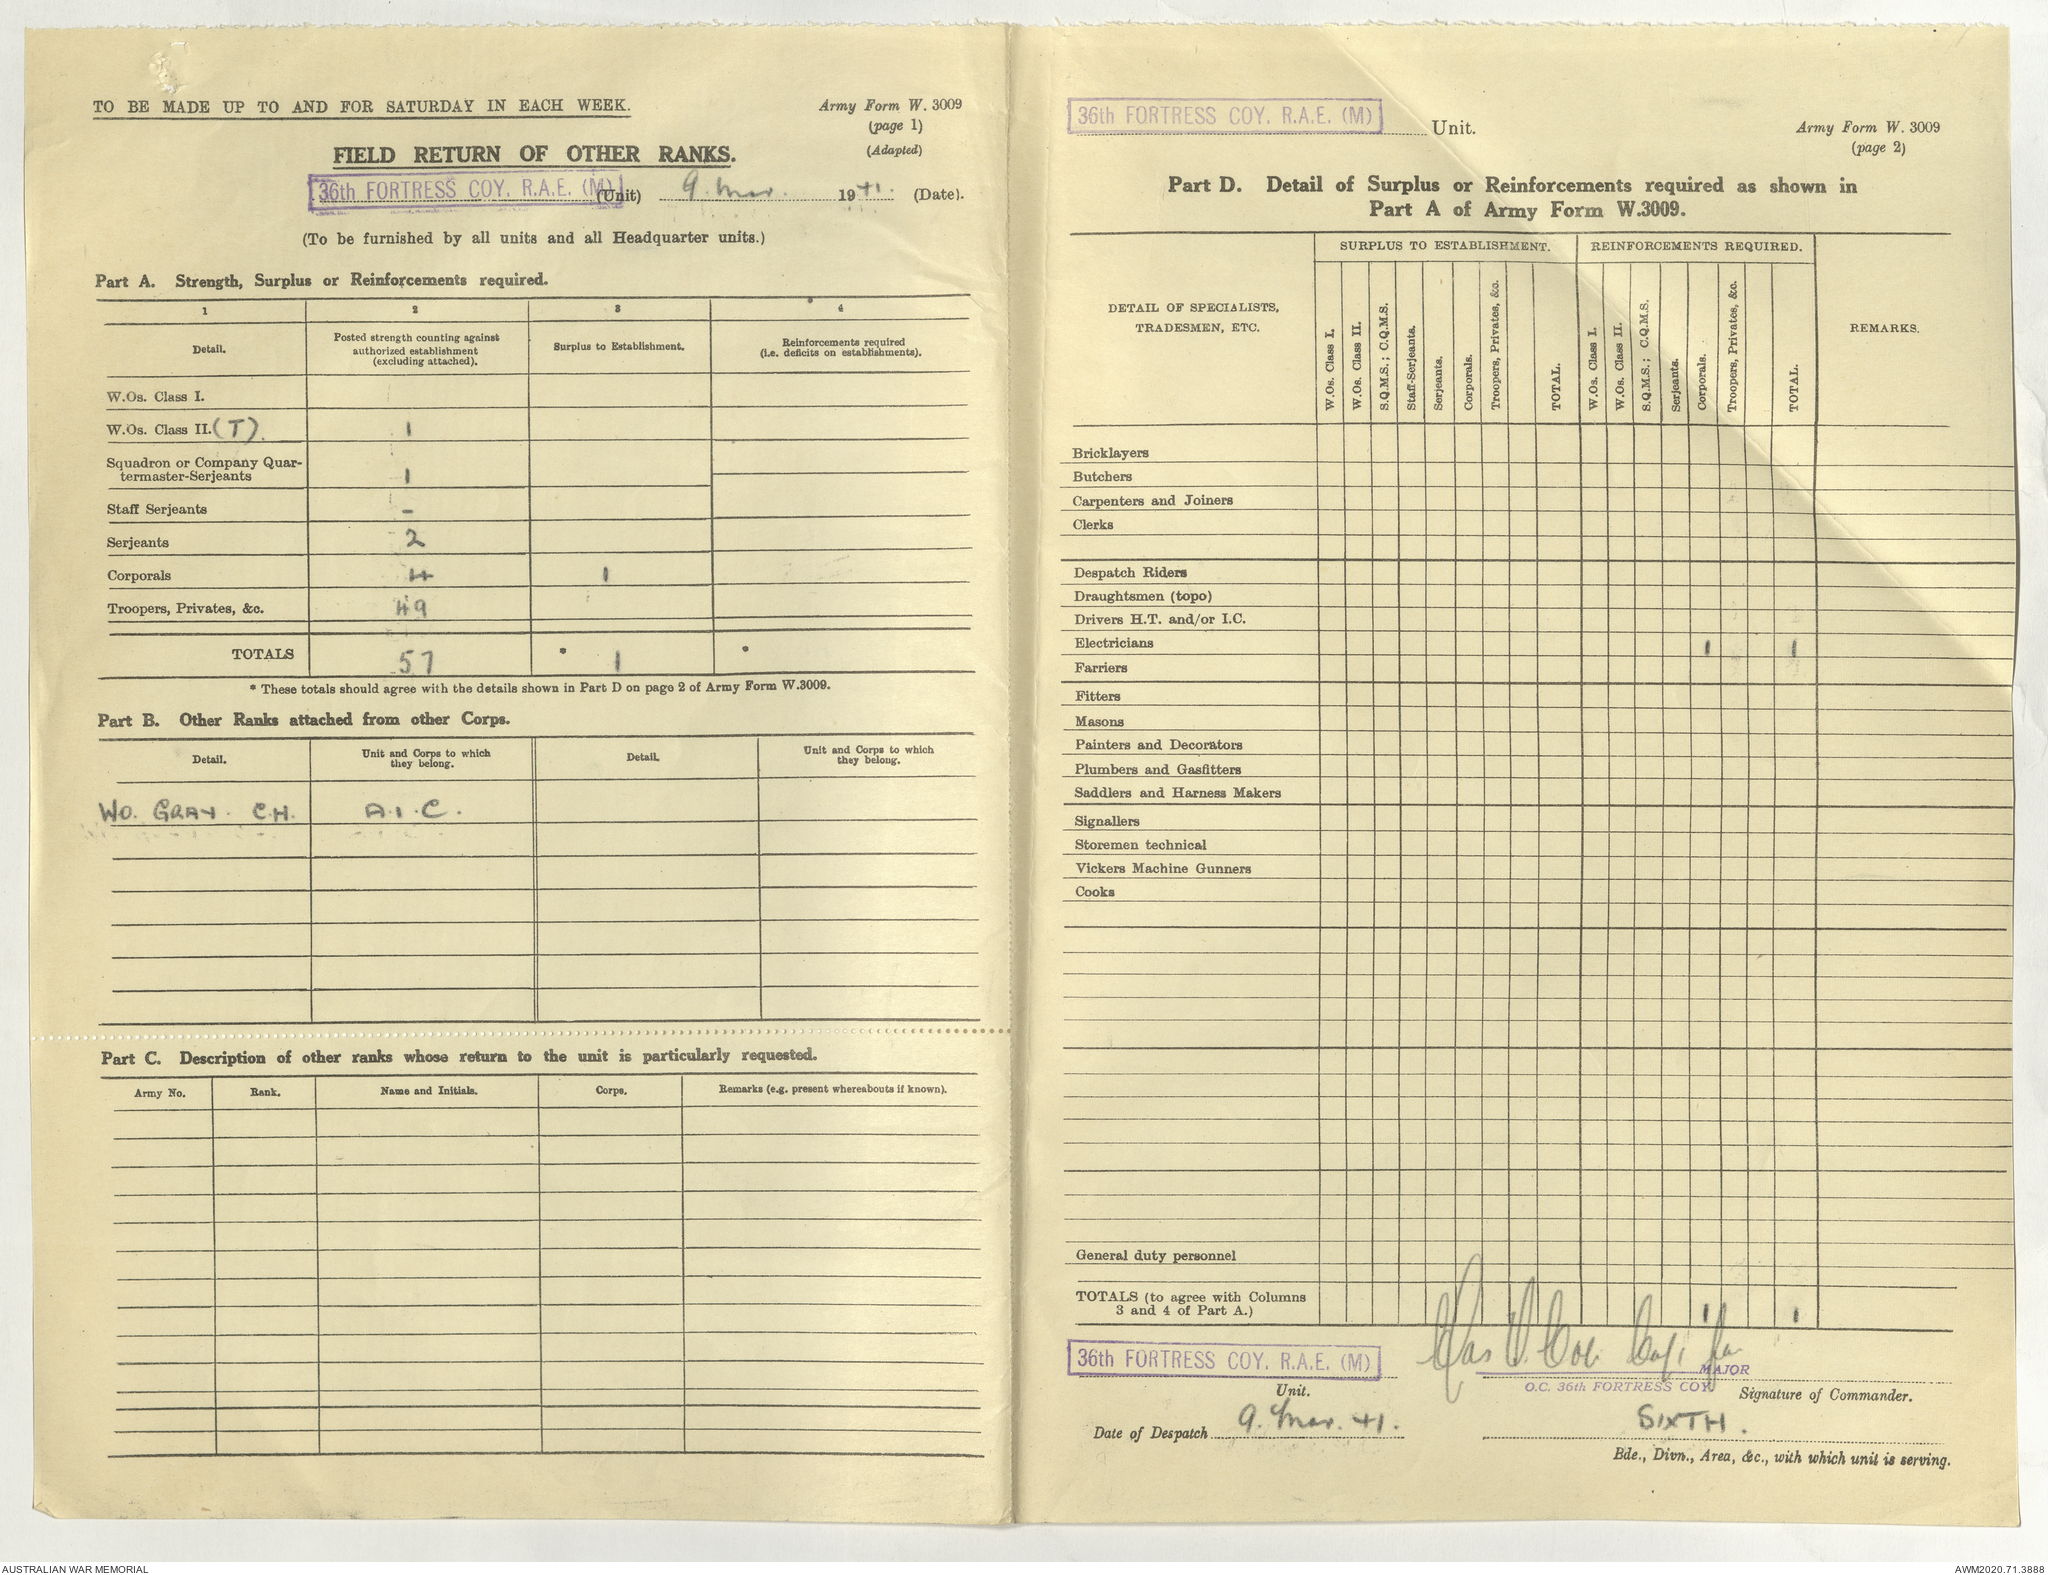 TO BE MADE UP TO AND FOR SATURDAY IN EACH WEEK.
Army Form W. 3009
(page 1)
(Adapted)
FIELD RETURN OF OTHER RANKS.
36th FORTRESS COY. R.A.E. (M) (Unit) 9. Mar. 1941. (Date).
(To be furnished by all units and all Headquarter units.)
Part A. Strength, Surplus or Reinforcements required.
1 2 3 4
Detail. Posted strength counting against authorized establishment (excluding attached). Surplus to Establishment. Reinforcements required (i.e. deficits on establishments).
W.Os. Class I.
W.Os. Class II. (T). 1
Squadron or Company Quar-
termaster-Serjeants 1
Staff Serjeants -
Serjeants 2
Corporals 4 1
Troopers, Privates, &c. 49
TOTALS 57 * 1 *
* These totals should agree with the details shown in Part D on page 2 of Army Form W.3009.
Part B. Other Ranks attached from other Corps.
Detail. Unit and Corps to which they belong. Detail. Unit and Corps to which they belong.
WO. GRAY. C.H. A.I.C.
Part C. Description of other ranks whose return to the unit is particularly requested.
Army No. Rank. Name and Initials. Corps. Remarks (e.g. present whereabouts if known).
36th FORTRESS COY. R.A.E. (M) Unit.
Army Form W. 3009
(page 2)
Part D. Detail of Surplus or Reinforcements required as shown in
Part A of Army Form W.3009.
SURPLUS TO ESTABLISHMENT. REINFORCEMENTS REQUIRED.
DETAIL OF SPECIALISTS,
TRADESMEN, ETC.
W.Os. Class I. W.Os. Class II. S.Q.M.S.; C.Q.M.S. Staff-Serjeants. Serjeants. Corporals. Troopers, Privates, &c. TOTAL. W.Os. Class I. W.Os. Class II. S.Q.M.S.; C.Q.M.S. Serjeants. Corporals. Troopers, Privates, &c. TOTAL. REMARKS.
Bricklayers
Butchers
Carpenters and Joiners
Clerks
Despatch Riders
Draughtsmen (topo)
Drivers H.T. and/or I.C.
Electricians 1 1
Farriers
Fitters
Masons
Painters and Decorators
Plumbers and Gasfitters
Saddlers and Harness Makers
Signallers
Storemen technical
Vickers Machine Gunners
Cooks
General duty personnel
TOTALS (to agree with Columns
3 and 4 of Part A.) 1 1
36th FORTRESS COY. R.A.E. (M)
Unit.
Capt for
MAJOR
O.C. 36th FORTRESS COY.
Signature of Commander.
Date of Despatch 9. Mar. 41.
SIXTH.
Bde., Divn., Area, &c., with which unit is serving.
AUSTRALIAN WAR MEMORIAL
AWM2020.71.3888